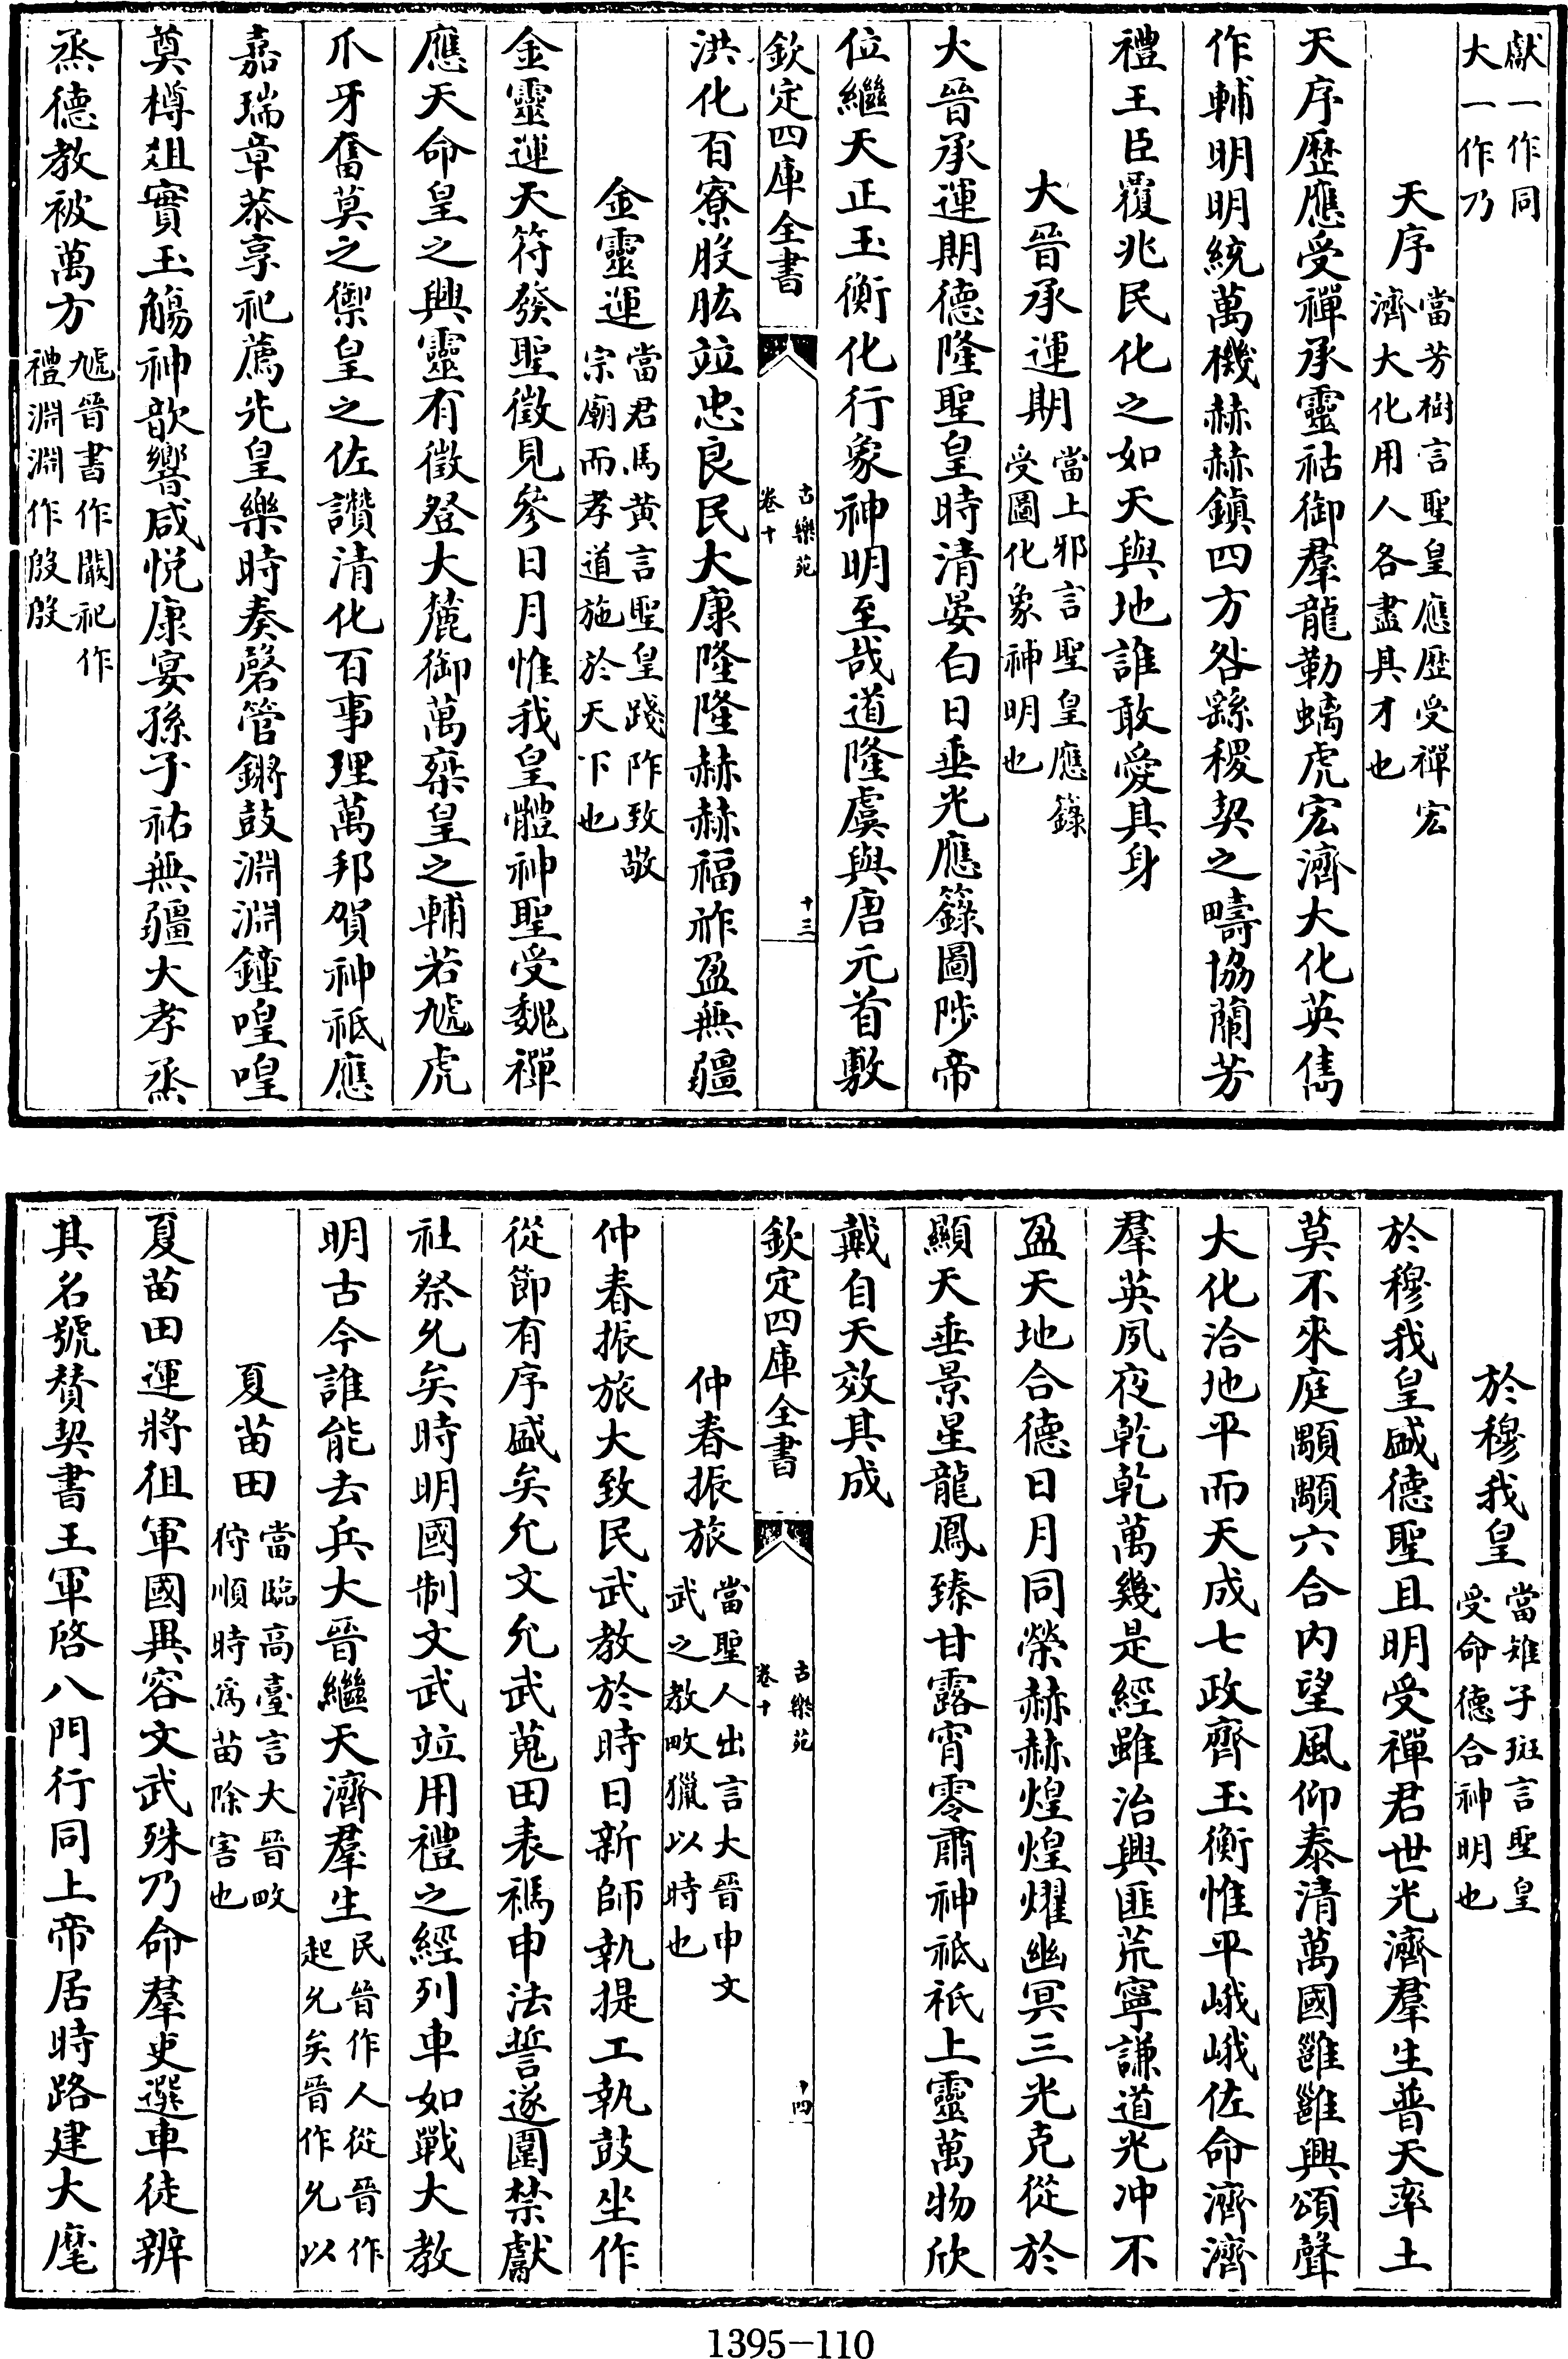 獻一作同
大一作乃
天序當芳樹言聖皇應歷受禪宏
濟大化用人各盡其才也
天序歷應受禪承靈祜御羣龍勒螭虎宏濟大化英儁
作輔明明統萬機赫赫鎮四方咎繇稷契之疇協蘭芳
禮王臣覆兆民化之如天與地誰敢愛其身
大晉承運期當上邪言聖皇應籙
受圖化象神明也
大晉承運期德隆聖皇時清晏白日垂光應籙圖陟帝
位繼天正玉衡化行象神明至哉道隆虞與唐元首敷
欽定四庫全書
古樂苑
卷十
十三
洪化百寮股肱竝忠良民大康隆隆赫赫福祚盈無疆
金靈運當君馬黃言聖皇踐阼致敬
宗廟而孝道施於天下也
金靈運天符發聖徵見參日月惟我皇體神聖受魏禪
應天命皇之興靈有徵登大麓御萬椉皇之輔若虓虎
爪牙奮莫之禦皇之佐讚清化百事理萬邦賀神祇應
嘉瑞章恭享祀薦先皇樂時奏磬管鏘鼓淵淵鐘喤喤
奠樽俎實玉觴神歆饗咸悅康宴孫子祐無疆大孝烝
烝德教被萬方虓晉書作闞祀作
禮淵淵作殷殷
於穆我皇當雉子斑言聖皇
受命德合神明也
於穆我皇盛德聖且明受禪君世光濟羣生普天率土
莫不來庭顒顒六合内望風仰泰清萬國雝雝興頌聲
大化洽地平而天成七政齊玉衡惟平峨峨佐命濟濟
羣英夙夜乾乾萬幾是經雖治興匪荒寧謙道光冲不
盈天地合德日月同榮赫赫煌煌燿幽冥三光克從於
顯天垂景星龍鳳臻甘露宵零肅神祇祗上靈萬物欣
戴自天效其成
欽定四庫全書
古樂苑
卷十
十四
仲春振旅當聖人出言大晉申文
武之教畋獵以時也
仲春振旅大致民武教於時日新師執提工執鼓坐作
從節有序盛矣允文允武蒐田表禡申法誓遂圍禁獻
社祭允矣時明國制文武竝用禮之經列車如戰大教
明古今誰能去兵大晉繼天濟羣生民晉作人從晉作
起允矣晉作允以
夏苗田當臨高臺言大晉畋
狩順時爲苗除害也
夏苗田運將徂軍國異容文武殊乃命羣吏選車徒辨
其名號贊契書王軍啓八門行同上帝居時路建大麾
1395-110